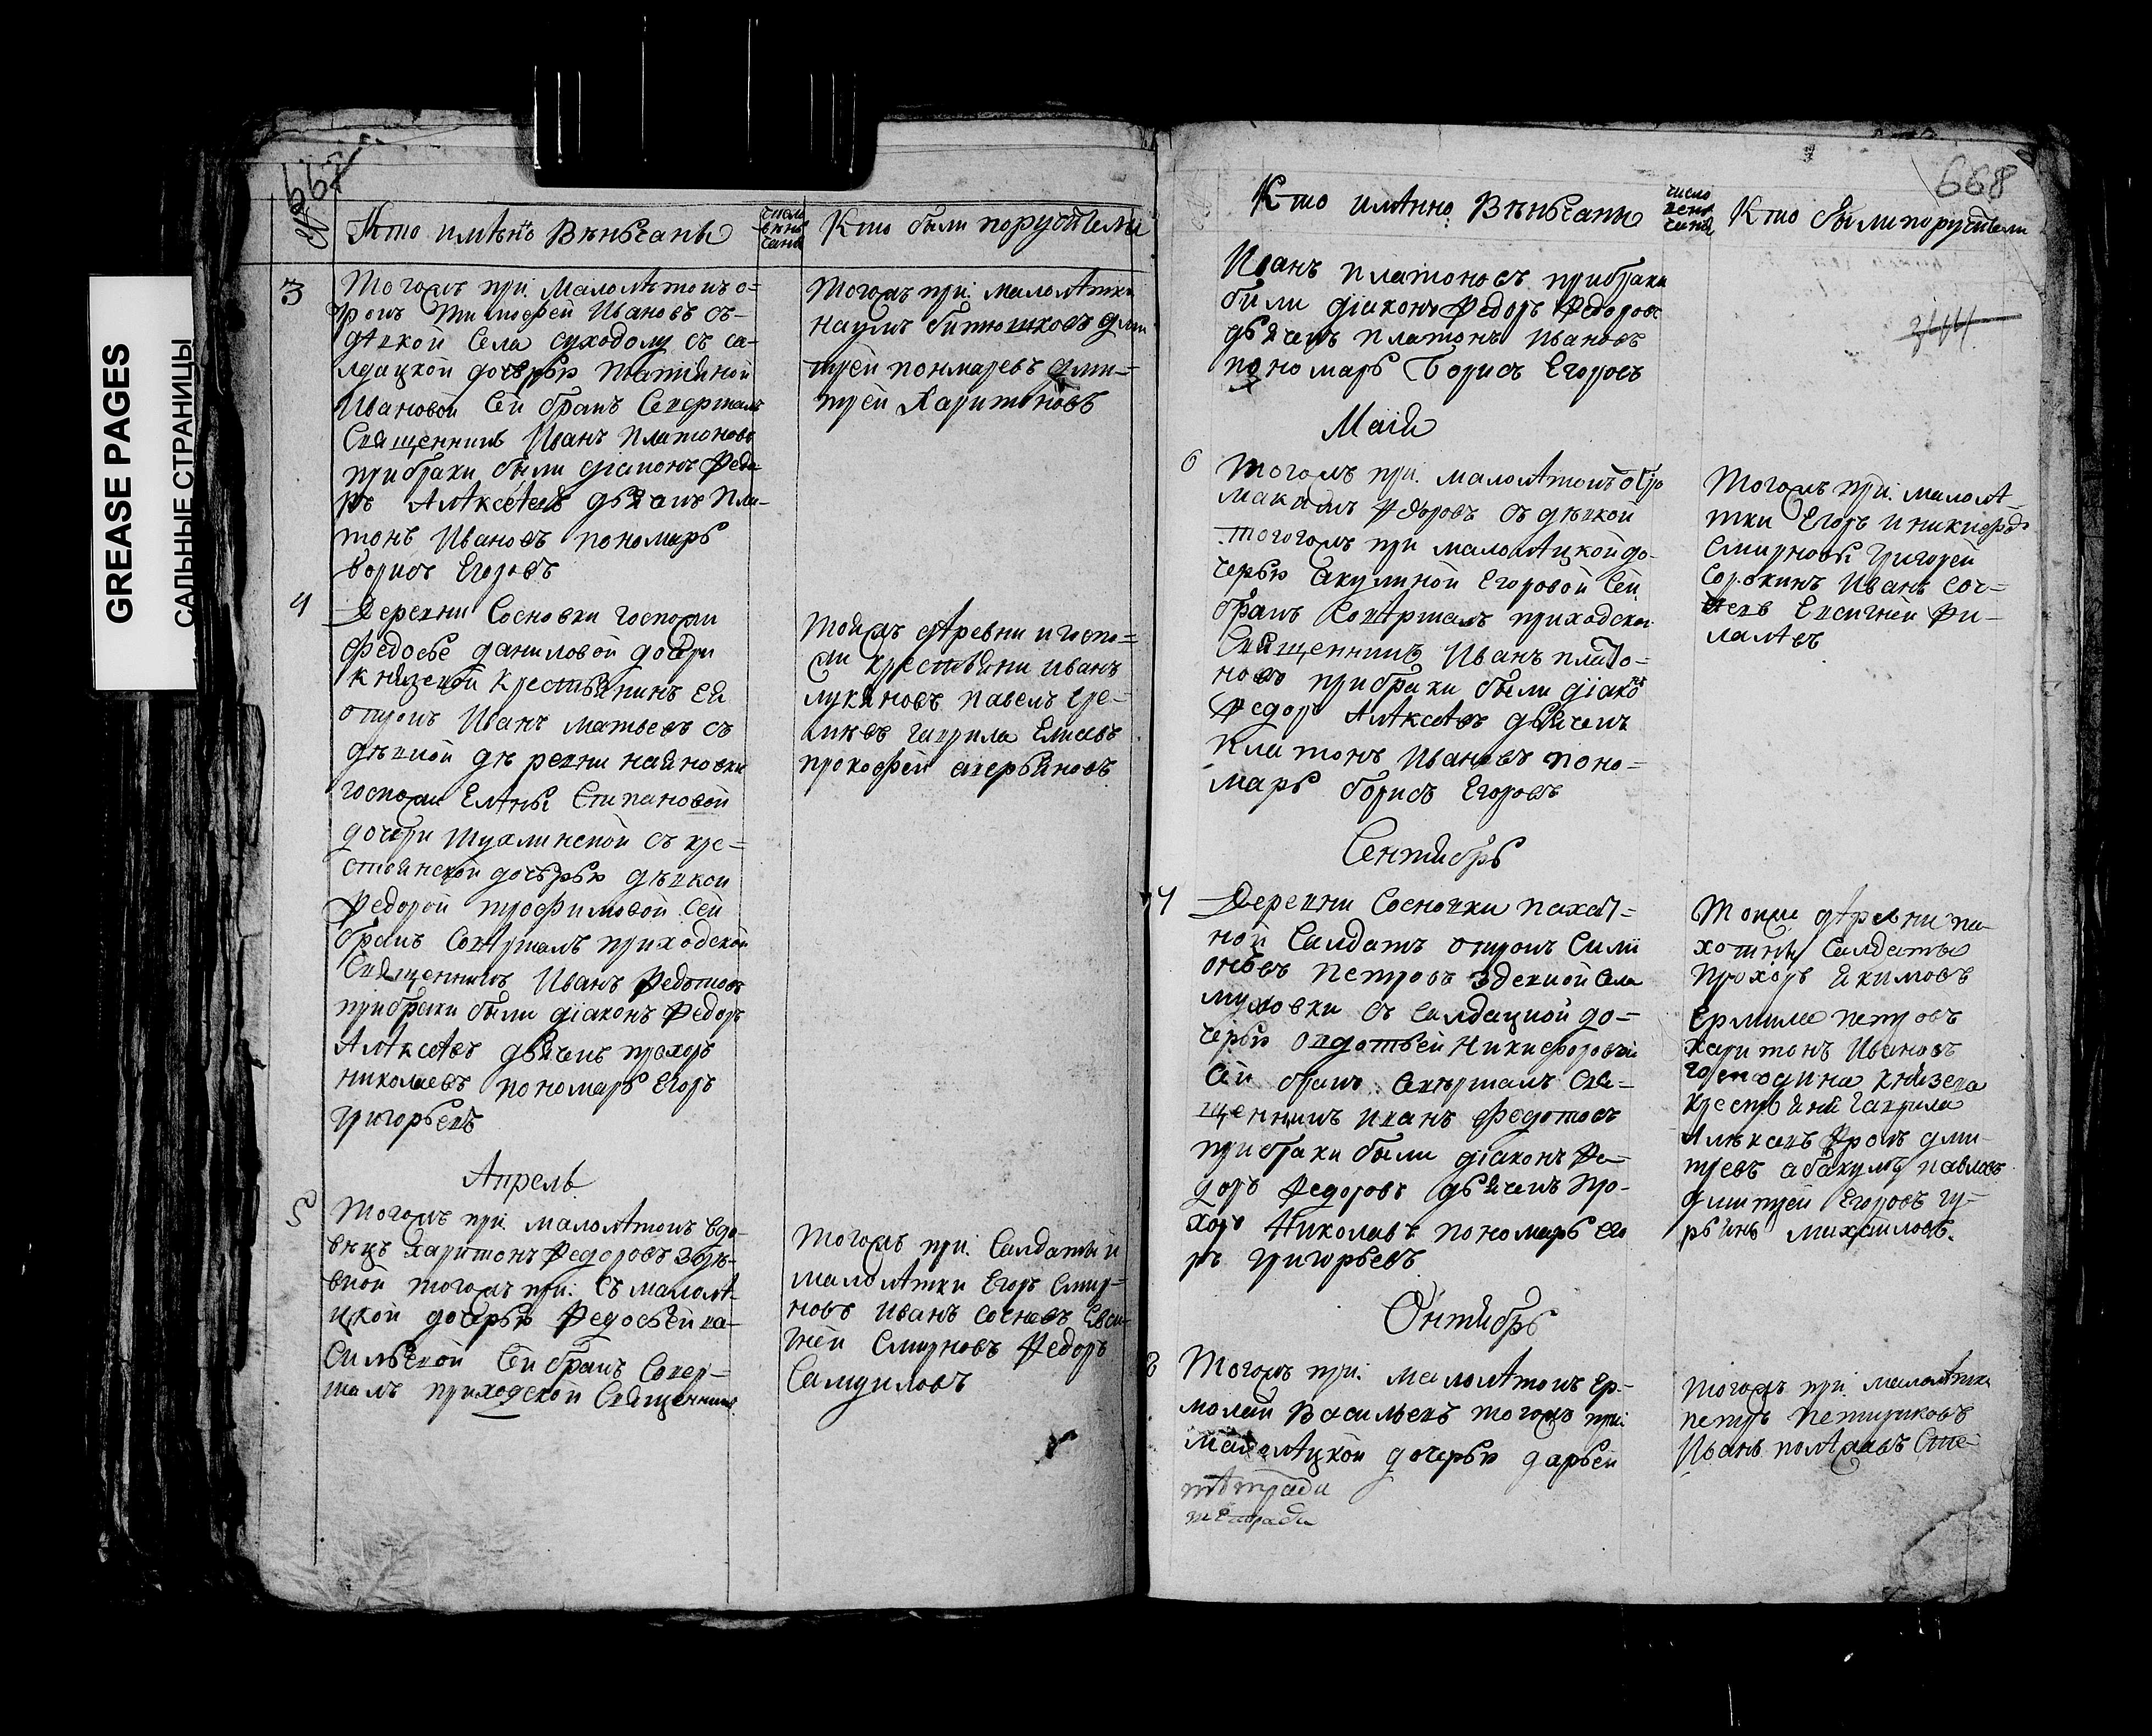 GREASE PAGES
САЛЬНЫЕ СТРАНИЦЫ
667
Кто имѣнъ Вѣньчаны
число
вѣнь
чаня
Кто были поручители
3
Тогожъ при. Малолѣтокъ о=
рокъ Тимофей Ивановъ съ
дѣвкой Села суходолу съ са-
лдацкой дочерью Татияной
Ивановой Сей бракъ Совершалъ
Священникъ Иванъ Платоновъ
прибраки были діаконъ Федо
ръ Алѣксѣевъ дьячекъ Пла-
тонъ Ивановъ пономарь
борисъ Егоровъ
Тогожъ при. малолѣтки
наумъ дми
трей понмаревъ дми=
трей Харитоновъ
4
Деревни Сосновки госпожи
Федосье даниловой дочери
крестьянинъ Ей
отрокъ Иванъ матьвевъ съ
дѣвкой дѣ ревни
госпожи Елѣны Степановой
дочери съ кре=
стьянской дочерью дѣвкой
Федорой трофимовой Сей
бракъ Совѣршалъ приходской
Священникъ Иванъ Федотовъ
прибраки были діаконъ Федоръ
Алѣксѣевъ дьячекъ прохоръ
николаевъ пономарь Егоръ
григорьевъ
Тойжъ дѣревни и госпо=
жи крестьяни иванъ
лукяновъ павелъ
гаврила Елисевъ
прокофей аверьяновъ
Апрель
5
Тогожъ при малолѣтокъ вдо-
вецъ Харитонъ Федоровъ здѣ-
вкой тогожъ при. Съ малолѣ-
цкой дочерью Федосьей ва-
сильевой Сей бракъ Совер-
шалъ приходской Священникъ
Тогожъ при. Салдаты и
малолѣтки Егоръ Смир=
новъ иванъ Сочневъ Евси-
гней Смирновъ Федоръ
Самуиловъ
668
Кто имѣнно Вѣньчаны
число
вень
чаня
Кто были поручители
Иванъ Платоновъ прибраки
были діаконъ Федоръ Федоровъ
дьячекъ Платонъ Ивановъ
пономарь Борисъ Егоровъ
Маия
6
Тогожъ при. малолѣтокъ отро
Макимъ Федоровъ съ дѣвкой
тогогожъ при малолѣцкой до-
черью Акулиной Егоровой Сей
бракъ Совѣршалъ приходской
Священникъ Иванъ плато=
новъ прибраки были діаконъ
Федоръ Алѣксѣевъ дьячекъ
Платонъ Ивановъ поно=
марь борисъ Егоровъ
Тогожъ при. малолѣ
тки Егоръ и никифоръ
Смирновы григорей
Сорокинъ Иванъ Соч=
невъ Евсигней Фи-
ла
Сентябрь
7
Деревни Сосновки пахат=
ной Салдатъ отрокъ Сили
онъевъ Петровъ здевкой Села
съ салдацкой до=
черью овдотьей Никифоровой
Сей бракъ Совершалъ Свя=
щенникъ иванъ Федотовъ
прибраки были діаконъ Фе=
доръ Федоровъ дьячекъ про-
хоръ Николавъ пономарь его
ръ григорьевъ
Тоиже дѣревни па-
хотны Салдаты
прохоръ якимовъ
Ермила петровъ
харитонъ Ивановъ
господина князева
крестьяни гаврила
Алѣксевъ Фролъ дми
тревъ абакумъ павловъ
дмитрей Егоровъ гу-
рьянъ михаиловъ.
Октябрь
8
Тогожъ при. малолѣтокъ Ер-
молай Васильевъ тогожъ при
малолѣцкой дочерью дарьей
тѣтради
тетради
Тогожъ при. малолѣтки
петръ
Иванъ Сте